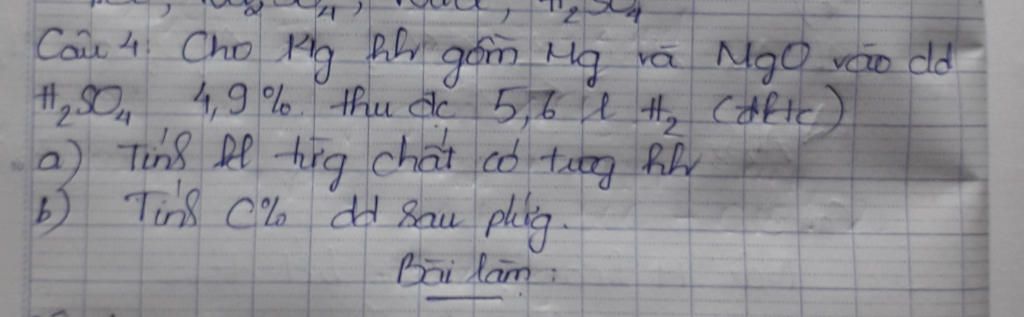 H₂SO₄
Câu 4: Cho 14g hh gồm Mg và MgO vào dd
H₂SO₄ 4,9% thu đc 5,6 l H₂ (đktc)
a) Tính kl từg chất có trog hh
b) Tính C% dd sau phứg.
Bài làm: